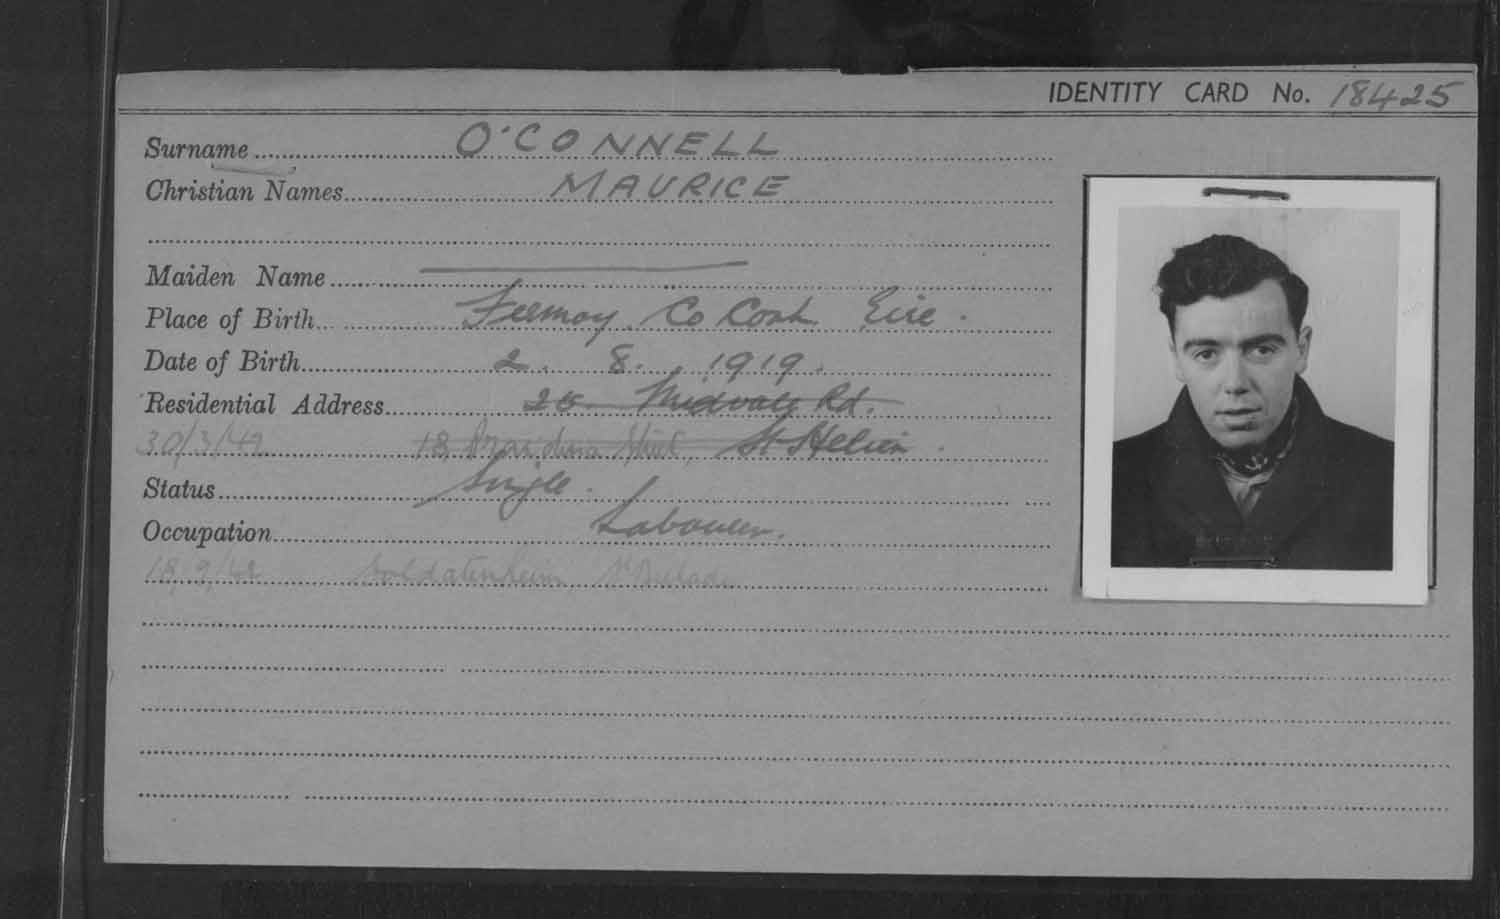 IDENTITY CARD No. 18425
Surname O'CONNELL
Christian Names MAURICE
Maiden Name
Place of Birth Fermoy Co Cork Eire.
Date of Birth 2. 8. 1919.
Residential Address 28 Midvale Rd.
30/3/42 18, Street, St Helier.
Status Single.
Occupation Labourer.
18/9/42 Soldatenheim, St